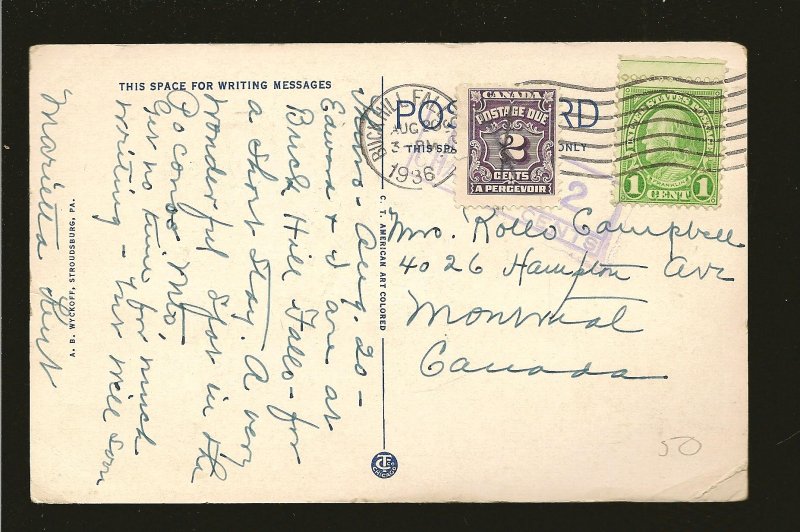 THIS SPACE FOR WRITING MESSAGES
Aug. 20 —
Edward & I are at
Buck Hill Falls — for
a short stay. A very
wonderful spot in the
Pocono Mts.
Get no time for much
writing — but will soon
Marietta
A. B. WYCKOFF, STROUDSBURG, PA.
C. T. AMERICAN ART COLORED
CTC
CHICAGO
POS RD
THIS SPA ONLY
BUCK HILL FAL
AUG 20
3 PM
1936
CANADA
POSTAGE DUE
2
CENTS
A PERCEVOIR
2
CENTS
UNITED STATES POSTAGE
FRANKLIN
1 1
CENT
Mrs. Rollo Campbell
4026 Hampton Ave
Montreal
Canada
50